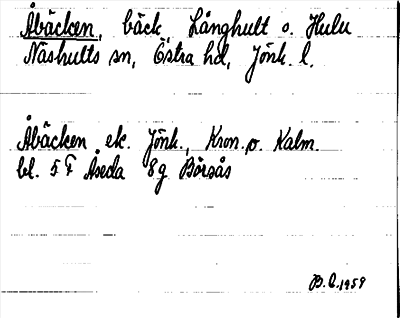 Åbäcken, bäck, Långhult o. Hulu
Näshults sn, Östra hd, Jönk. l.
Åbäcken ek. Jönk., Kron. o. Kalm.
bl. 5 F Åseda 8g Börsås
1959